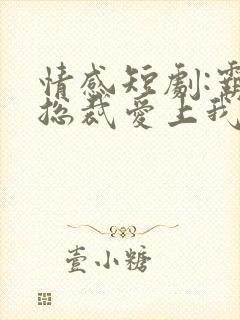 情感短劇:霸
總裁愛上我
壹小糖